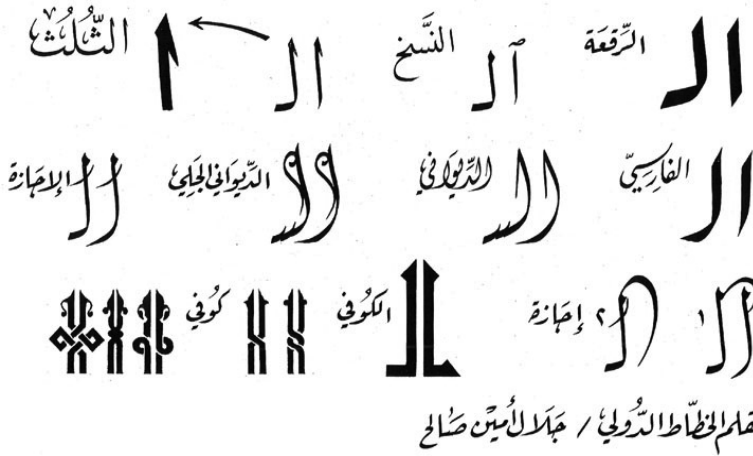 ال الرِّقعَة ال النَّسخ ال ا الثُّلُث
ال الفارِسِيّ ال الدِّيوَاني ال الدِّيوَاني الجَلِي ال الإجَازة
ال ١ ال ٢ إجَازة ال الكُوفي كُوفي
بقلم الخطّاط الدّولي / جَلَال أمين صَالح